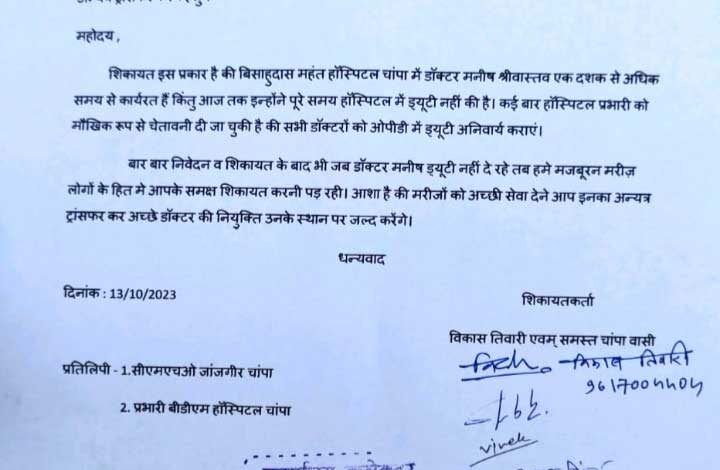 महोदय,
शिकायत इस प्रकार है की बिसाहुदास महंत हॉस्पिटल चांपा में डॉक्टर मनीष श्रीवास्तव एक दशक से अधिक
समय से कार्यरत हैं किंतु आज तक इन्होंने पूरे समय हॉस्पिटल में ड्यूटी नहीं की है। कई बार हॉस्पिटल प्रभारी को
मौखिक रूप से चेतावनी दी जा चुकी है की सभी डॉक्टरों को ओपीडी में ड्यूटी अनिवार्य कराएं।
बार बार निवेदन व शिकायत के बाद भी जब डॉक्टर मनीष ड्यूटी नहीं दे रहे तब हमे मजबूरन मरीज़
लोगों के हित मे आपके समक्ष शिकायत करनी पड़ रही। आशा है की मरीजों को अच्छी सेवा देने आप इनका अन्यत्र
ट्रांसफर कर अच्छे डॉक्टर की नियुक्ति उनके स्थान पर जल्द करेंगे।
धन्यवाद
दिनांक : 13/10/2023
शिकायतकर्ता
विकास तिवारी एवम् समस्त चांपा वासी
प्रतिलिपी - 1.सीएमएचओ जांजगीर चांपा
विकास तिवारी
9617004404
2. प्रभारी बीडीएम हॉस्पिटल चांपा
vivek